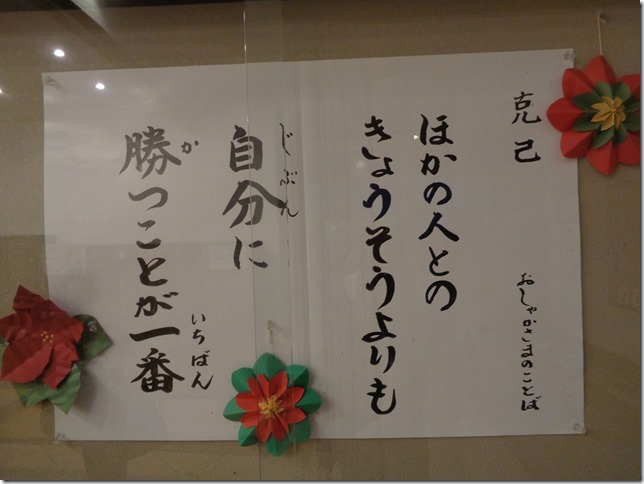 克己
おしゃかさまのことば
ほかの人との
きょうそうよりも
じぶん
自分に
か
勝つことが一番
いちばん